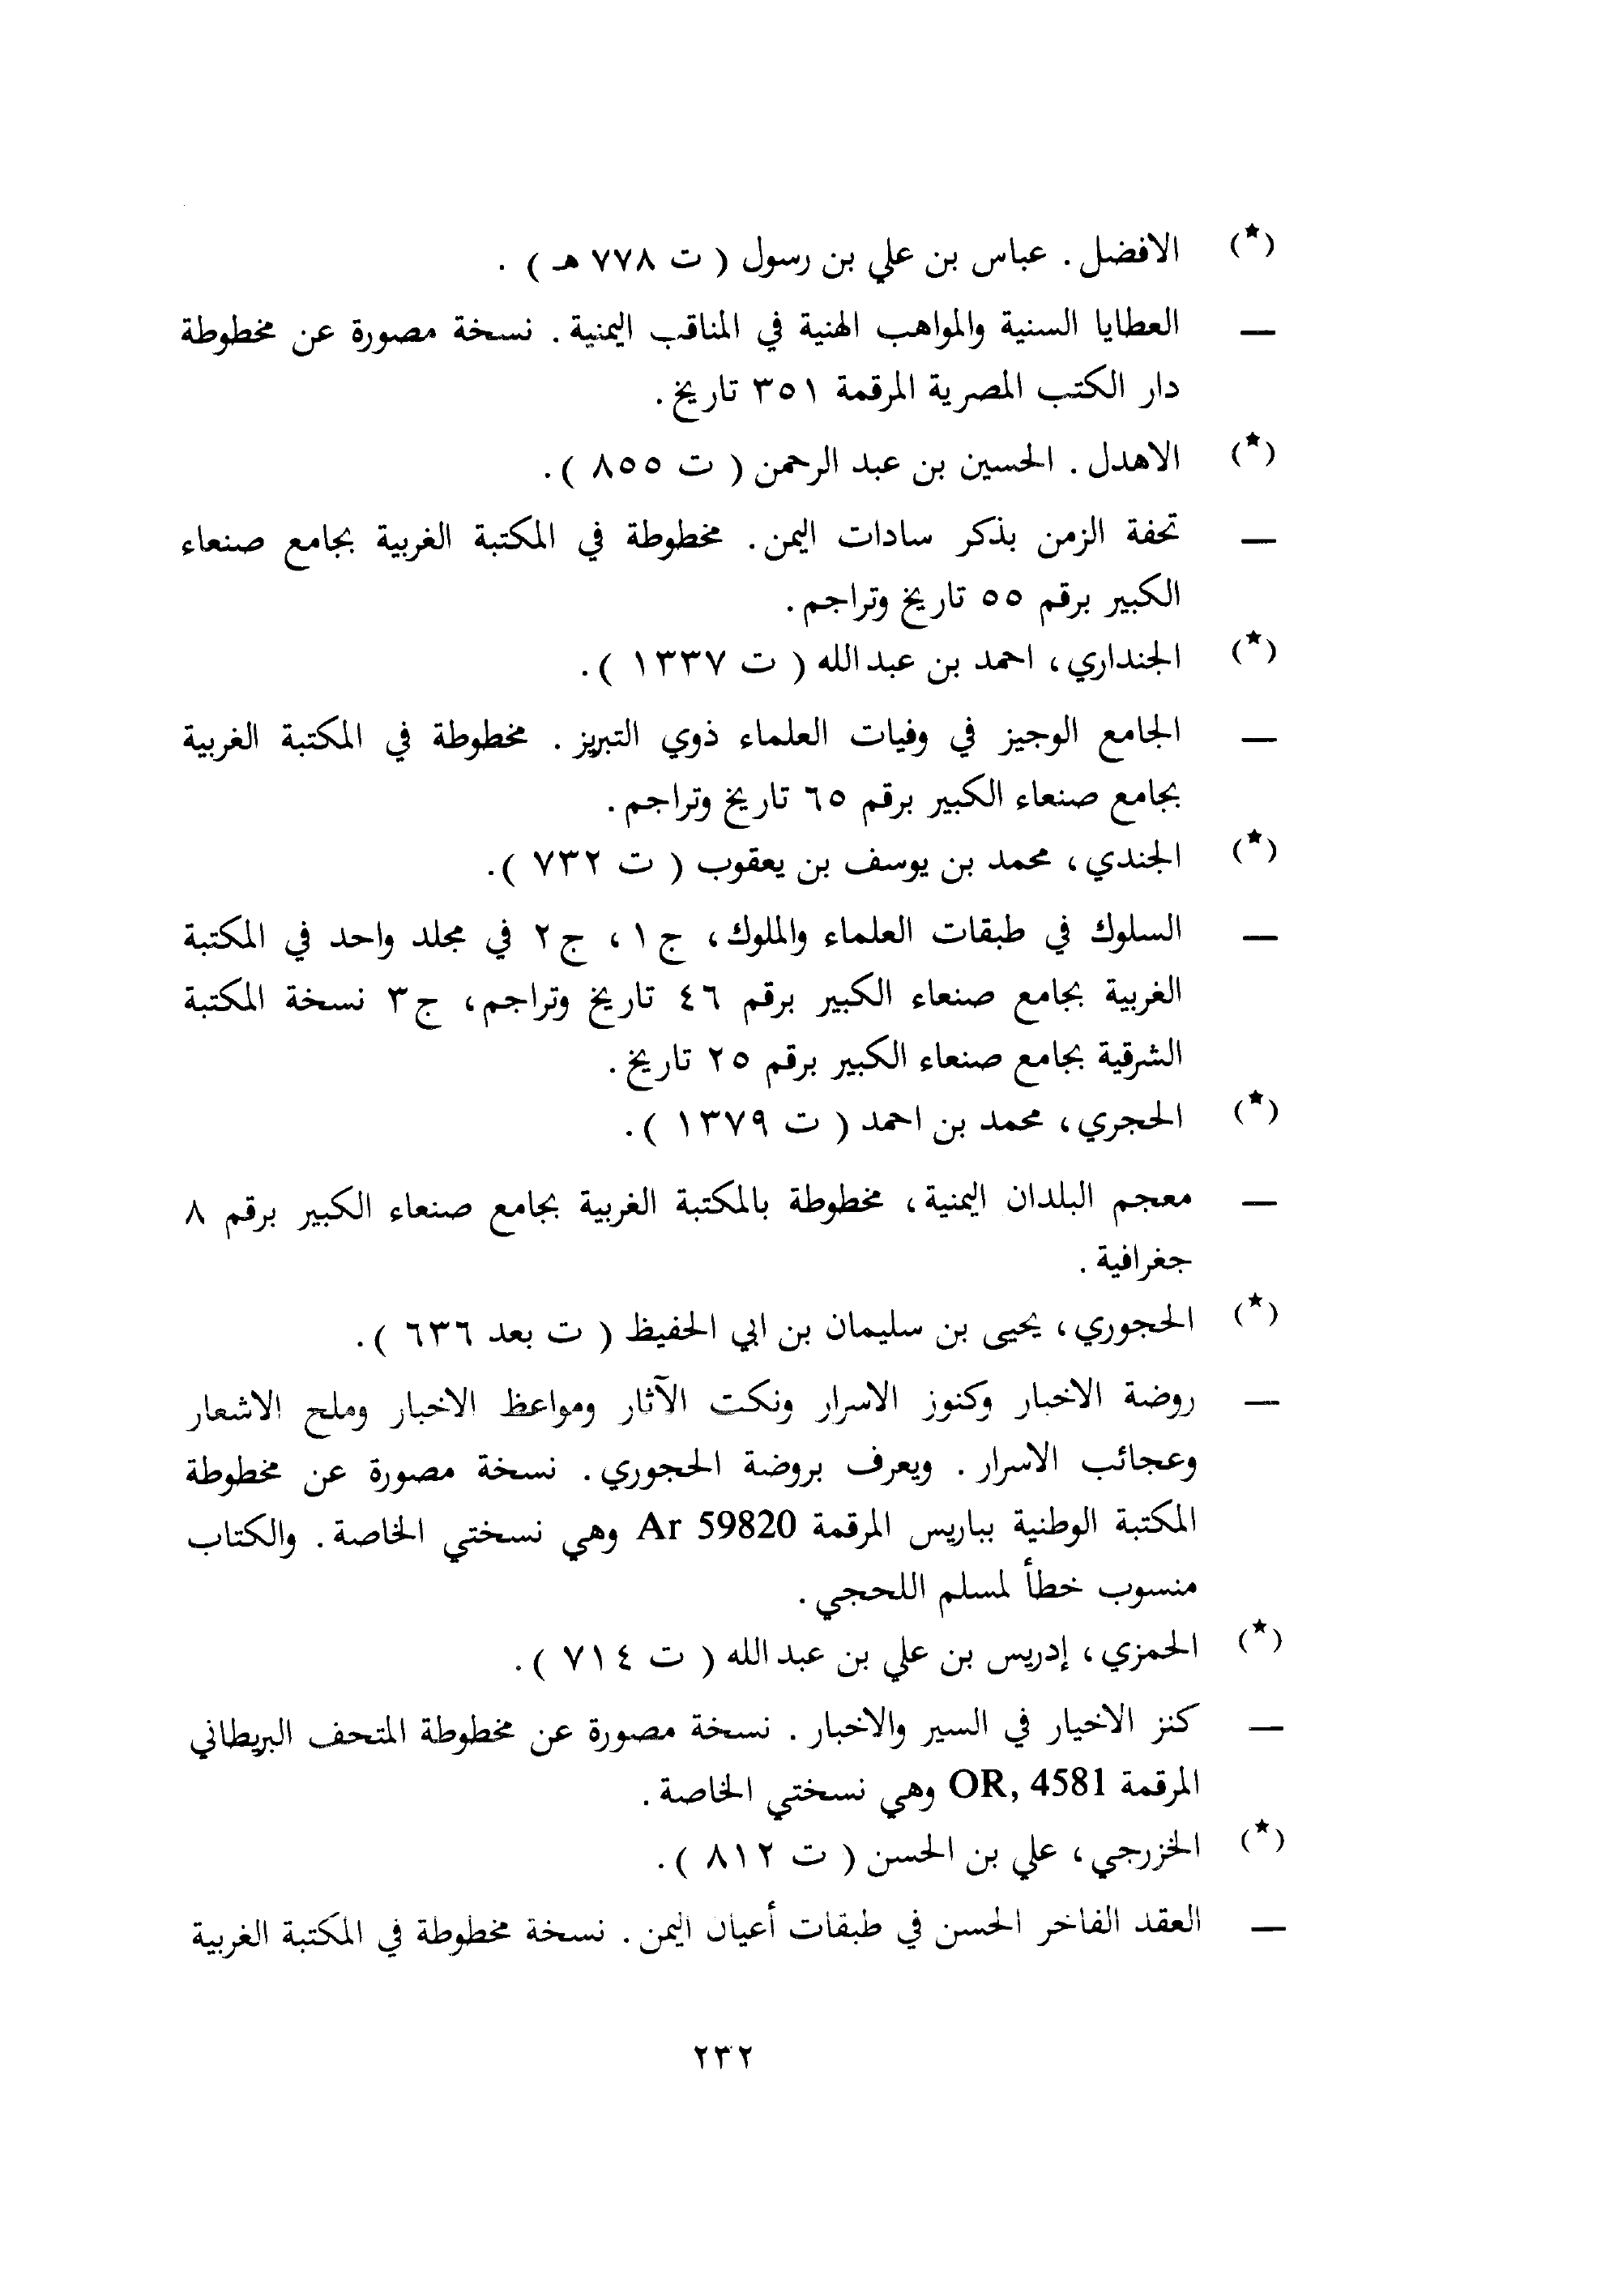 (*) الافضل . عباس بن علي بن رسول ( ت ٧٧٨ هـ ) .
— العطايا السنية والمواهب الهنية في المناقب اليمنية . نسخة مصورة عن مخطوطة
دار الكتب المصرية المرقمة ٣٥١ تاريخ .
(*) الاهدل . الحسين بن عبد الرحمن ( ت ٨٥٥ ) .
— تحفة الزمن بذكر سادات اليمن . مخطوطة في المكتبة الغربية بجامع صنعاء
الكبير برقم ٥٥ تاريخ وتراجم .
(*) الجنداري ، احمد بن عبد الله ( ت ١٣٣٧ ) .
— الجامع الوجيز في وفيات العلماء ذوي التبريز . مخطوطة في المكتبة الغربية
بجامع صنعاء الكبير برقم ٦٥ تاريخ وتراجم .
(*) الجندي ، محمد بن يوسف بن يعقوب ( ت ٧٣٢ ) .
— السلوك في طبقات العلماء والملوك ، ج ١ ، ج ٢ في مجلد واحد في المكتبة
الغربية بجامع صنعاء الكبير برقم ٤٦ تاريخ وتراجم ، ج ٣ نسخة المكتبة
الشرقية بجامع صنعاء الكبير برقم ٢٥ تاريخ .
(*) الحجري ، محمد بن احمد ( ت ١٣٧٩ ) .
— معجم البلدان اليمنية ، مخطوطة بالمكتبة الغربية بجامع صنعاء الكبير برقم ٨
جغرافية .
(*) الحجوري ، يحيى بن سليمان بن ابي الحفيظ ( ت بعد ٦٣٦ ) .
— روضة الاخبار وكنوز الاسرار ونكت الآثار ومواعظ الاخبار وملح الاشعار
وعجائب الاسرار . ويعرف بروضة الحجوري . نسخة مصورة عن مخطوطة
المكتبة الوطنية بباريس المرقمة Ar 59820 وهي نسختي الخاصة . والكتاب
منسوب خطأ لمسلم اللحجي .
(*) الحمزي ، إدريس بن علي بن عبد الله ( ت ٧١٤ ) .
— كنز الاخيار في السير والاخبار . نسخة مصورة عن مخطوطة المتحف البريطاني
المرقمة OR, 4581 وهي نسختي الخاصة .
(*) الخزرجي ، علي بن الحسن ( ت ٨١٢ ) .
— العقد الفاخر الحسن في طبقات أعيان اليمن . نسخة مخطوطة في المكتبة الغربية
٢٣٢